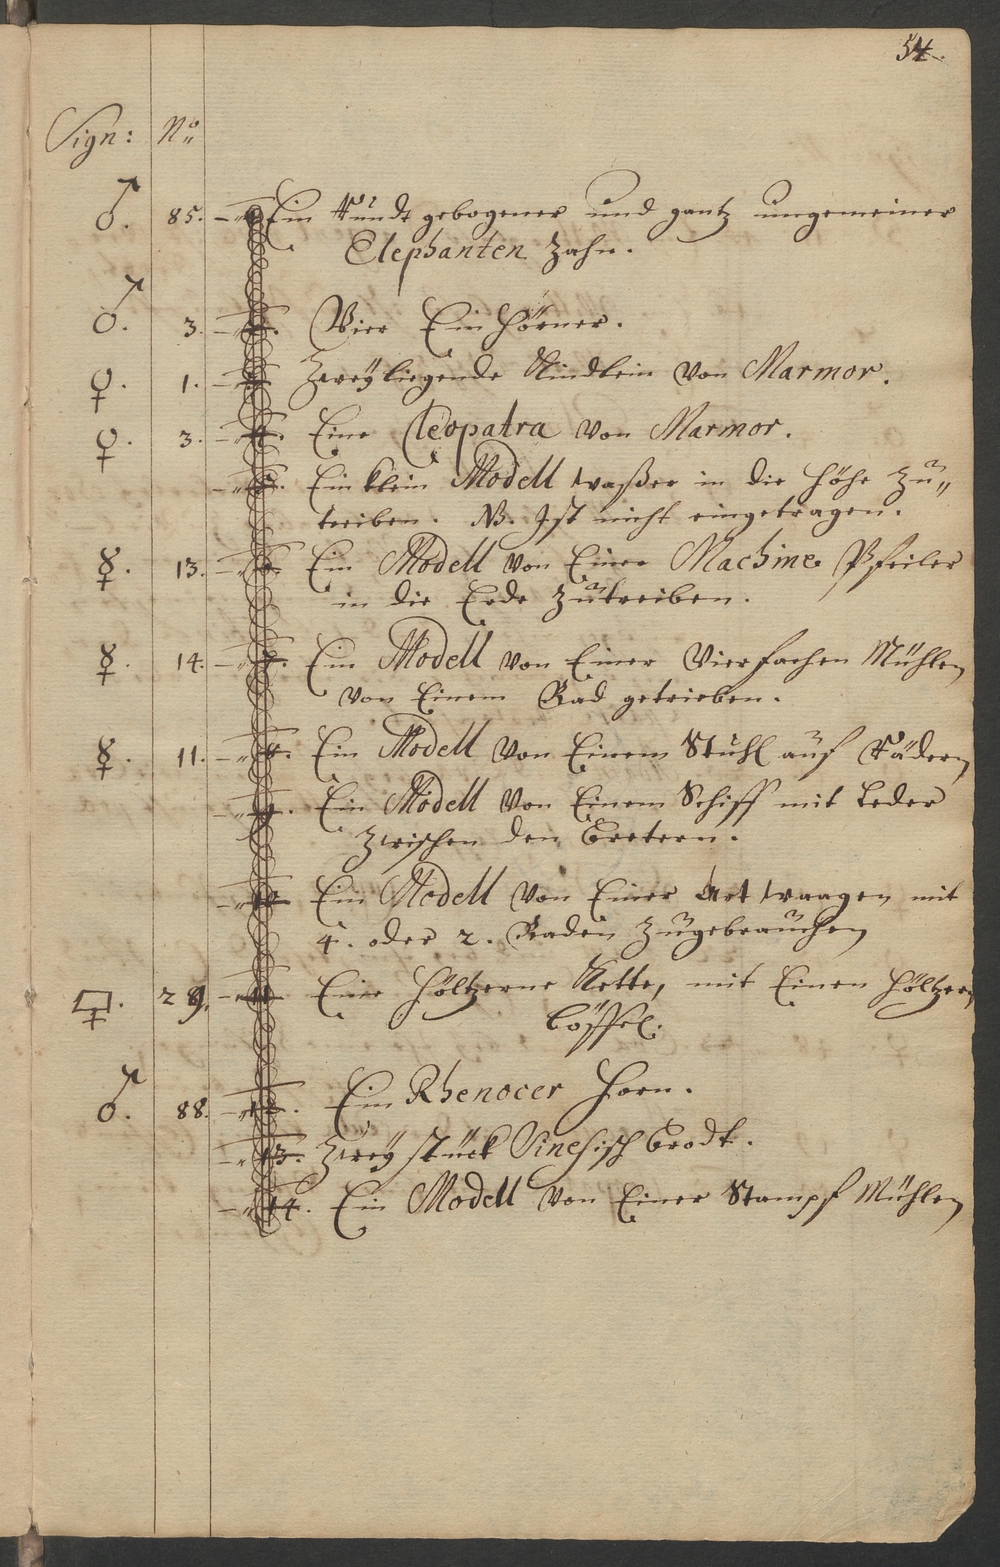 54.
Sign: No
♂. 85. 1. Ein Rundt gebogener und gantz ungemeiner
Elephanten Zahn.
♂. 3. 2. Vier Einhörner.
♀. 1. 3. Zwey liegende Kindlein von Marmor.
♀. 3. 4. Eine Cleopatra von Marmor.
5. Ein klein Modell waßer in die Höhe zu„
treiben. NB. Ist nicht eingetragen.
☿. 13. 6. Ein Modell von Einer Machine Pfeiler
in die Erde zutreiben.
☿. 14. 7. Ein Modell von Einer Vierfachen Mühlen
von Einem Rad getrieben.
☿. 11. 8. Ein Modell von Einem Stuhl auf Rädern
9. Ein Modell von Einem Schiff mit Leder
zwischen den Bretern.
10. Ein Modell von Einer Art waagen mit
4. oder 2. Raden zugebrauchen
29. 11. Eine höltzerne Kette, mit Einen höltzern
Löffel.
♂. 88. 12. Ein Rhenocer Horn.
13. Zwey stück Sinesisch Brodt.
14. Ein Modell von Einer Stampf Mühlen